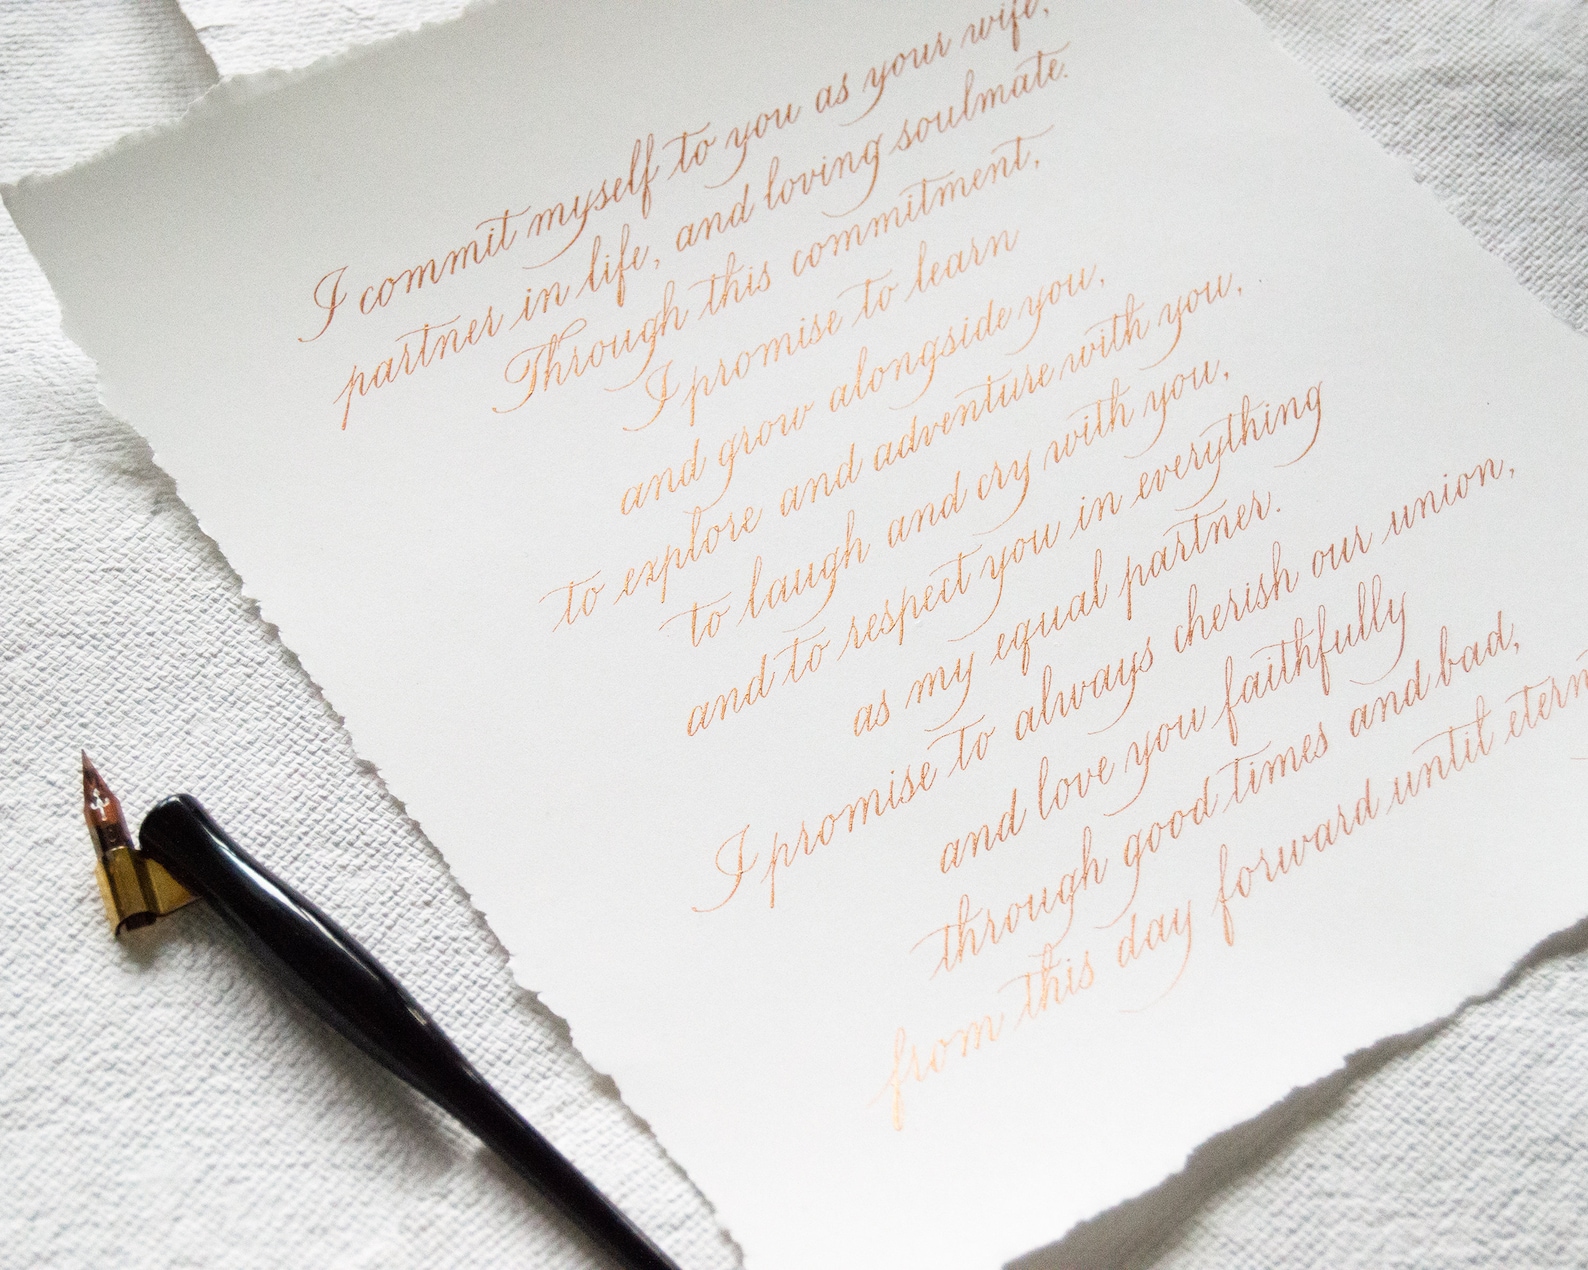 I commit myself to you as your wife,
partner in life, and loving soulmate.
Through this commitment,
I promise to learn
and grow alongside you,
to explore and adventure with you,
to laugh and cry with you,
and to respect you in everything
as my equal partner.
I promise to always cherish our union,
and love you faithfully
through good times and bad,
from this day forward until etern